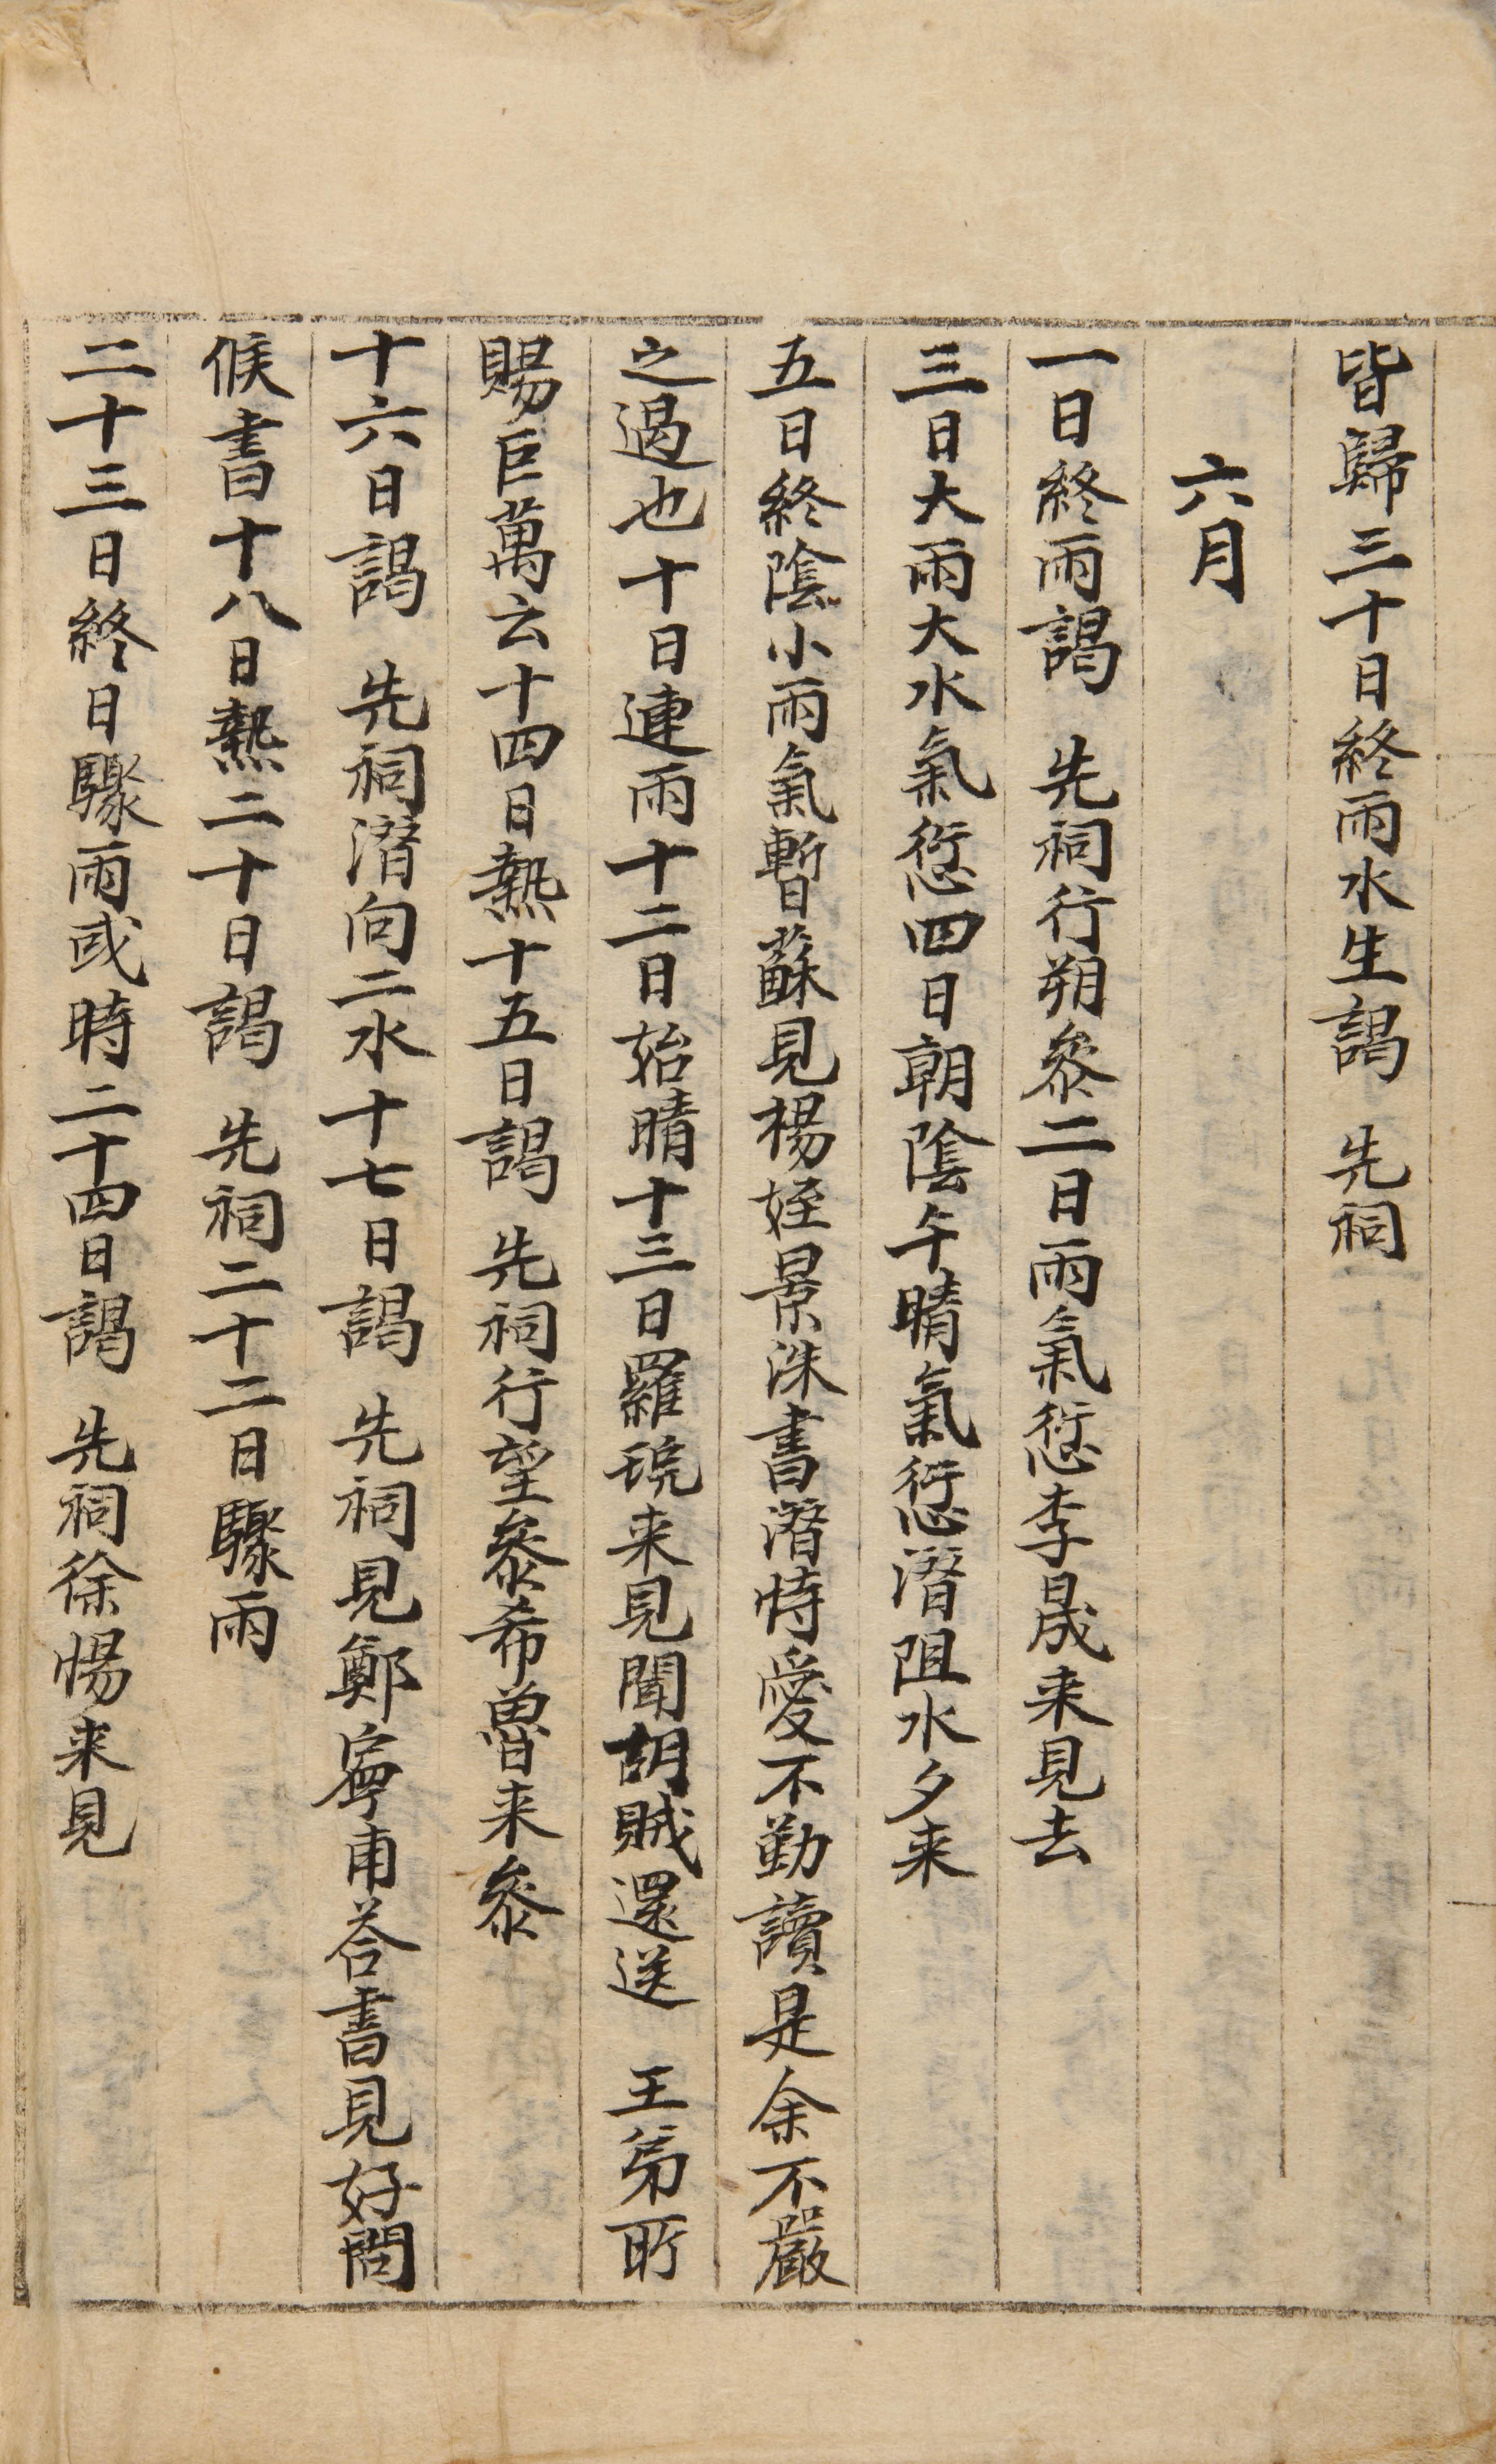 皆歸三十日終雨水生謁 先祠
六月
一日終雨謁 先祠行朔叅二日雨氣愆李晟来見去
三日大雨大水氣愆四日朝陰午晴氣愆潛阻水夕来
五日終陰小雨氣暫蘇見楊姪景洙書潛恃愛不勤讀是余不嚴
之過也十日連雨十二日始晴十三日羅琓来見聞胡賊還送 王弟所
賜巨萬云十四日熱十五日謁 先祠行望叅希魯来叅
十六日謁 先祠潛向二水十七日謁 先祠見鄭寗甫答書見好問
候書十八日熱二十日謁 先祠二十二日驟雨
二十三日終日驟雨或時二十四日謁 先祠徐惕来見